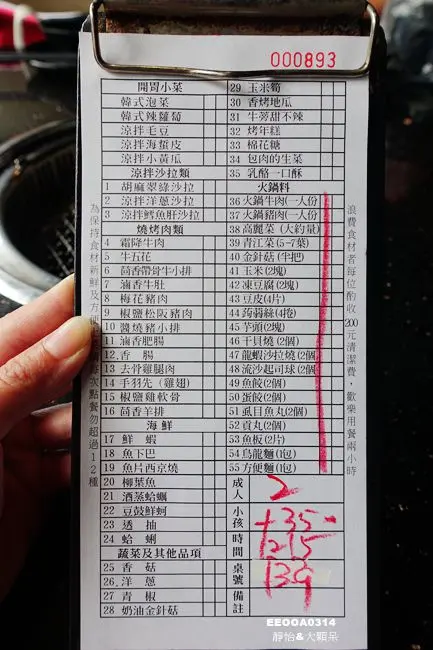 000893
開胃小菜
韓式泡菜
韓式辣蘿蔔
涼拌毛豆
涼拌海蜇皮
涼拌小黃瓜
涼拌沙拉類
1 胡麻翠綠沙拉
2 涼拌洋蔥沙拉
3 涼拌鱈魚肝沙拉
燒烤肉類
4 霜降牛肉
5 牛五花
6 茴香帶骨牛小排
7 滷香牛肚
8 梅花豬肉
9 椒鹽松阪豬肉
10 醬燒豬小排
11 滷香肥腸
12 香腸
13 去骨雞腿肉
14 手羽先(雞翅)
15 椒鹽雞軟骨
16 茴香羊排
海鮮
17 鮮蝦
18 魚下巴
19 魚片西京燒
20 柳葉魚
21 酒蒸蛤蠣
22 豆鼓鮮蚵
23 透抽
24 蛤蜊
蔬菜及其他品項
25 香菇
26 洋蔥
27 青椒
28 奶油金針菇
29 玉米筍
30 香烤地瓜
31 牛蒡甜不辣
32 烤年糕
33 棉花糖
34 包肉的生菜
35 乳酪一口酥
火鍋料
36 火鍋牛肉(一人份)
37 火鍋豬肉(一人份)
38 高麗菜(大約量)
39 青江菜(5-7葉)
40 金針菇(半把)
41 玉米(2塊)
42 凍豆腐(2塊)
43 豆皮(4片)
44 蒟蒻絲(4捲)
45 芋頭(2塊)
46 干貝燒(2個)
47 龍蝦沙拉燒(2個)
48 流沙起司球(2個)
49 魚餃(2個)
50 蛋餃(2個)
51 虱目魚丸(2個)
52 貢丸(2個)
53 魚板(2片)
54 烏龍麵(1包)
55 方便麵(1包)
成人 2
小孩 +35-
時間 1215
桌號 139
備註
為保持食材新鮮及方便
每次點餐勿超過12種
浪費食材者每位酌收200元清潔費，歡樂用餐兩小時
EEOOA0314
靜怡&大顆呆